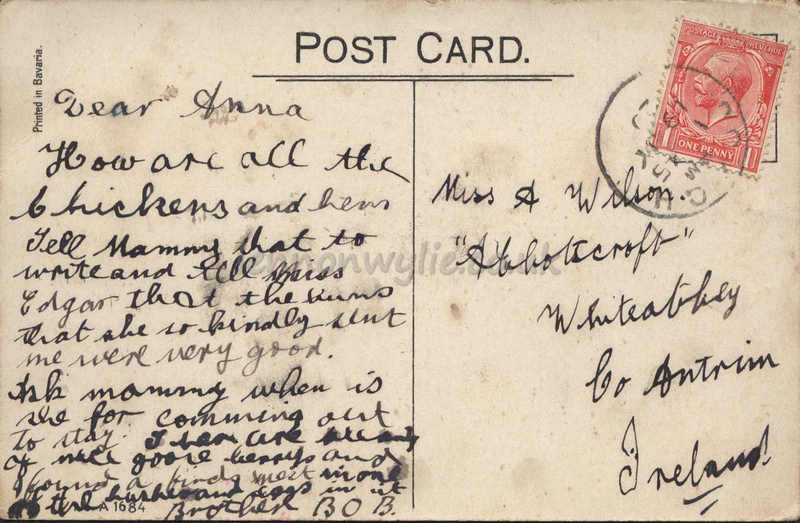 POST CARD.
Printed in Bavaria.
Dear Anna
How are all the
Chickens and hens
Tell Mammy that to
write and tell Miss
Edgar that the buns
that she so kindly sent
me were very good.
Ask mammy when is
she for comming out
to stay. There are
of nice goose berrys and
I found a birds nest in one
of the bushes and eggs in it
Brother BOB.
A 1684
POSTAGE REVENUE
ONE PENNY
Miss A Wilson.
"Abbotscroft"
Whiteabbey
Co Antrim
Ireland
lennonwylie.co.uk